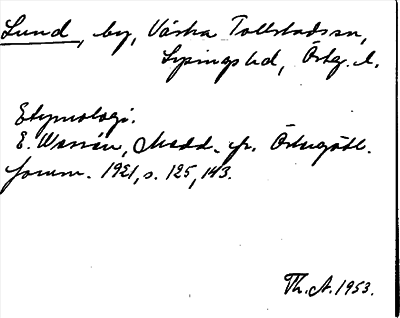 Lund, by, Västra Tollstads sn,
Lysings hd, Östg. l.
Etymologi.
E. Wessén, Medd. fr. Östergötl.
fornm. 1921, s. 125, 143.
Th. A. 1953.